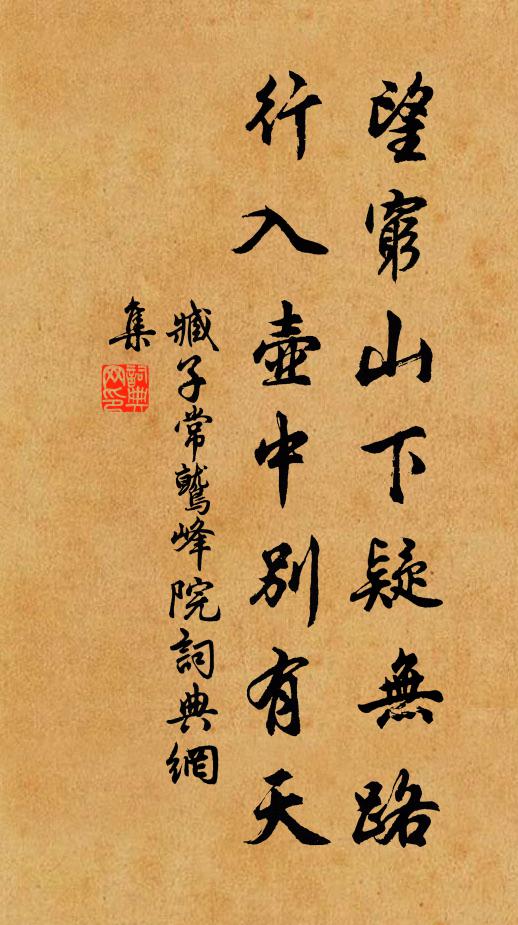 望窮山下疑無路
行入壺中別有天
臧子常鷲峰院詞典網
集
詞典
网印